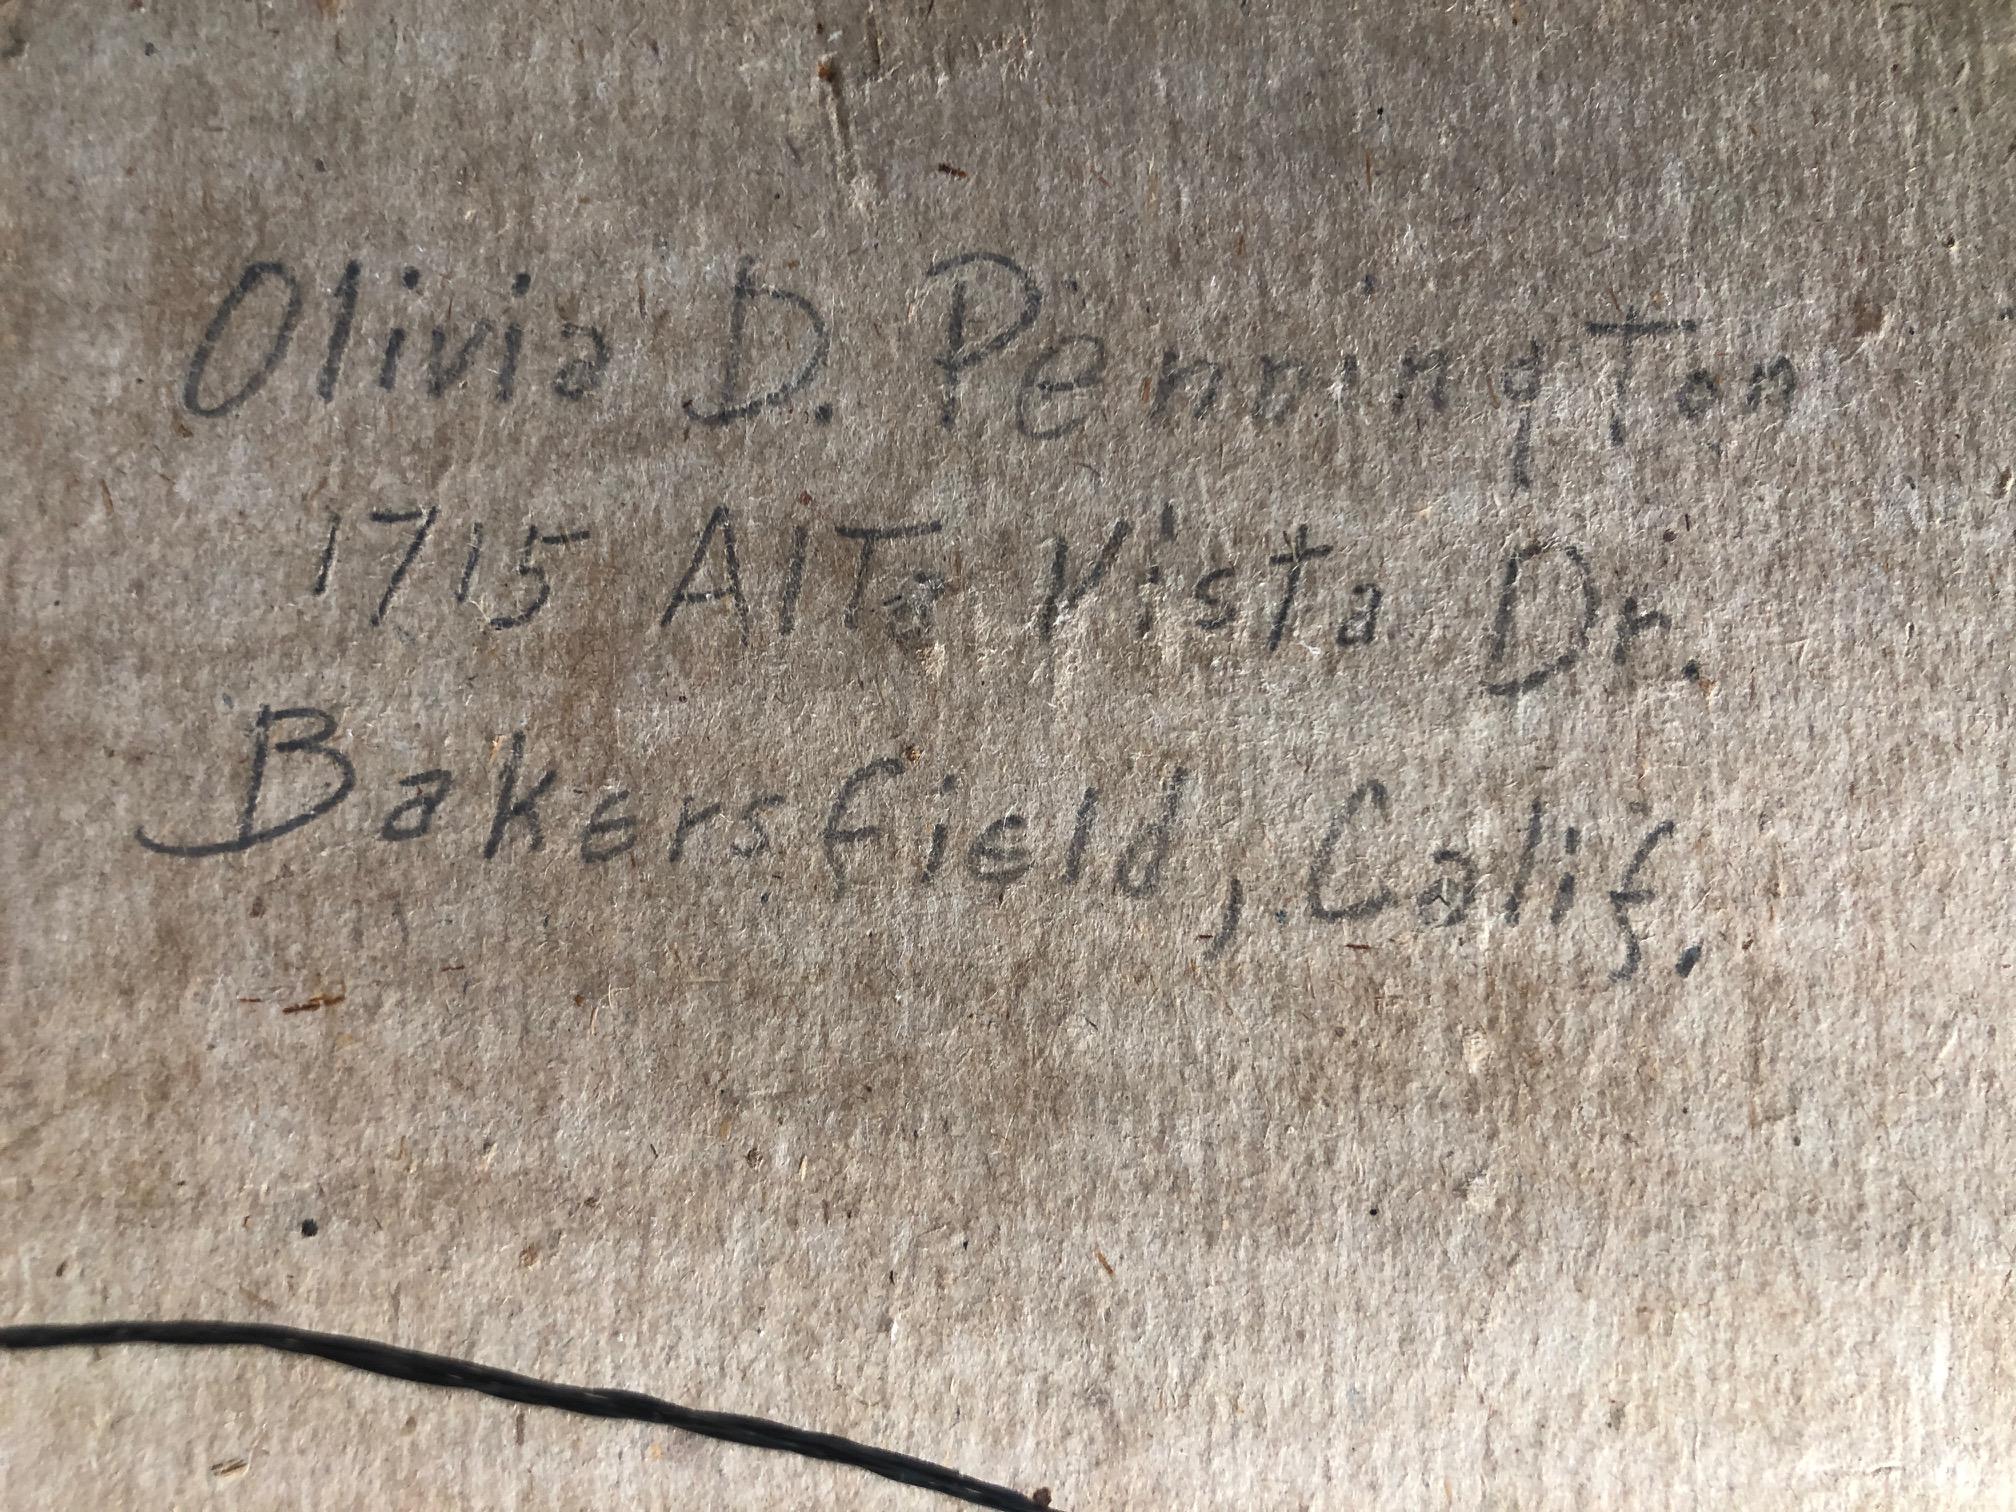 Olivia D. Pennington
1715 Alta Vista Dr.
Bakersfield, Calif.